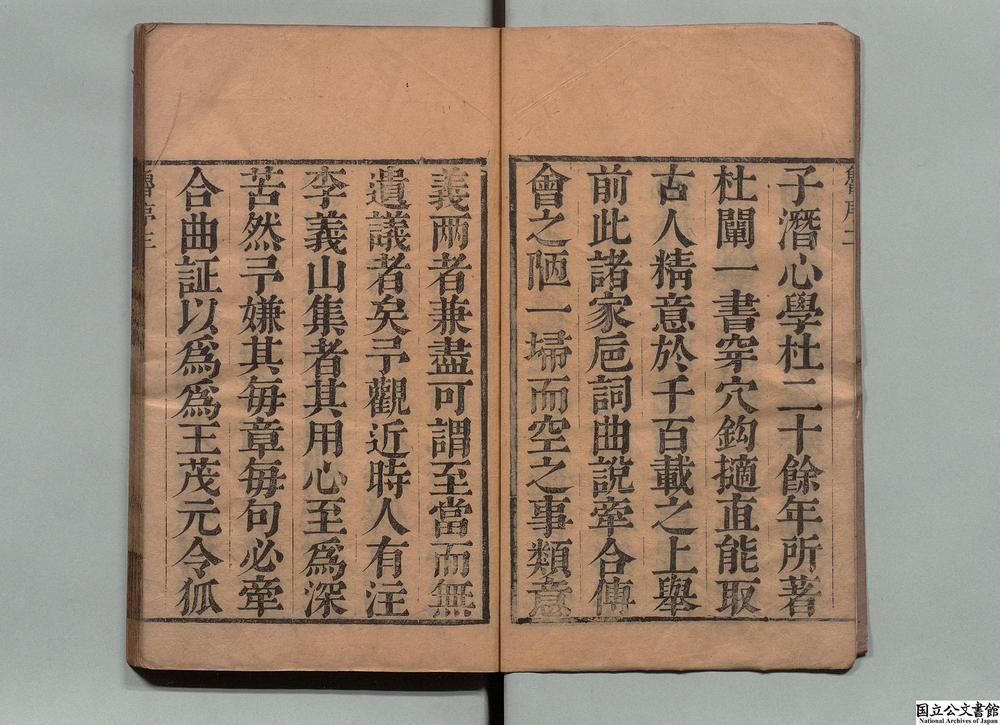 子潛心學杜二十餘年所著
杜闡一書穿穴鈎擿直能取
古人精意於千百載之上舉
前此諸家卮詞曲說牽合傅
會之陋一埽而空之事類意
義兩者兼盡可謂至當而無
遺議者矣予觀近時人有注
李義山集者其用心至爲深
苦然予嫌其每章每句必牽
合曲証以爲爲王茂元令狐
魯序三
国立公文書館
National Archives of Japan